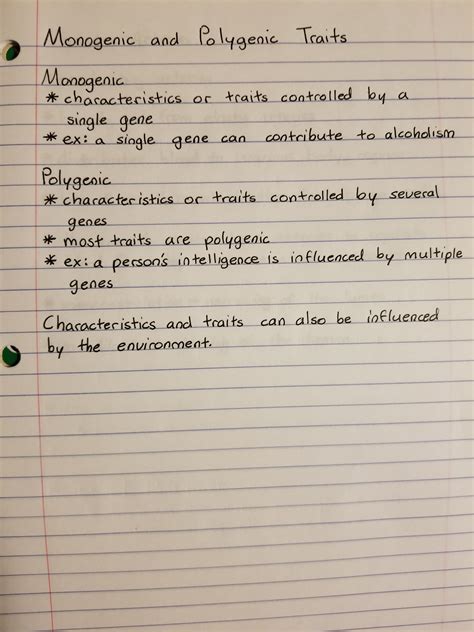 Monogenic and Polygenic Traits
Monogenic
* characteristics or traits controlled by a
single gene
* ex: a single gene can contribute to alcoholism
Polygenic
* characteristics or traits controlled by several
genes
* most traits are polygenic
* ex: a person's intelligence is influenced by multiple
genes
Characteristics and traits can also be influenced
by the environment.